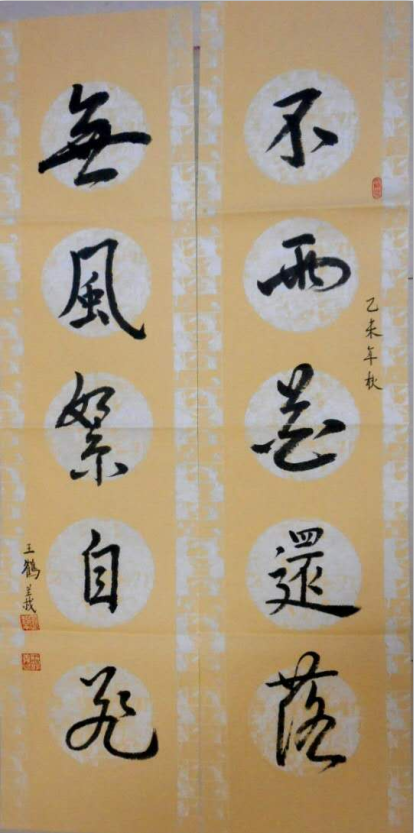 乙未年秋
不雨花還落
無風絮自飛
王鶴義